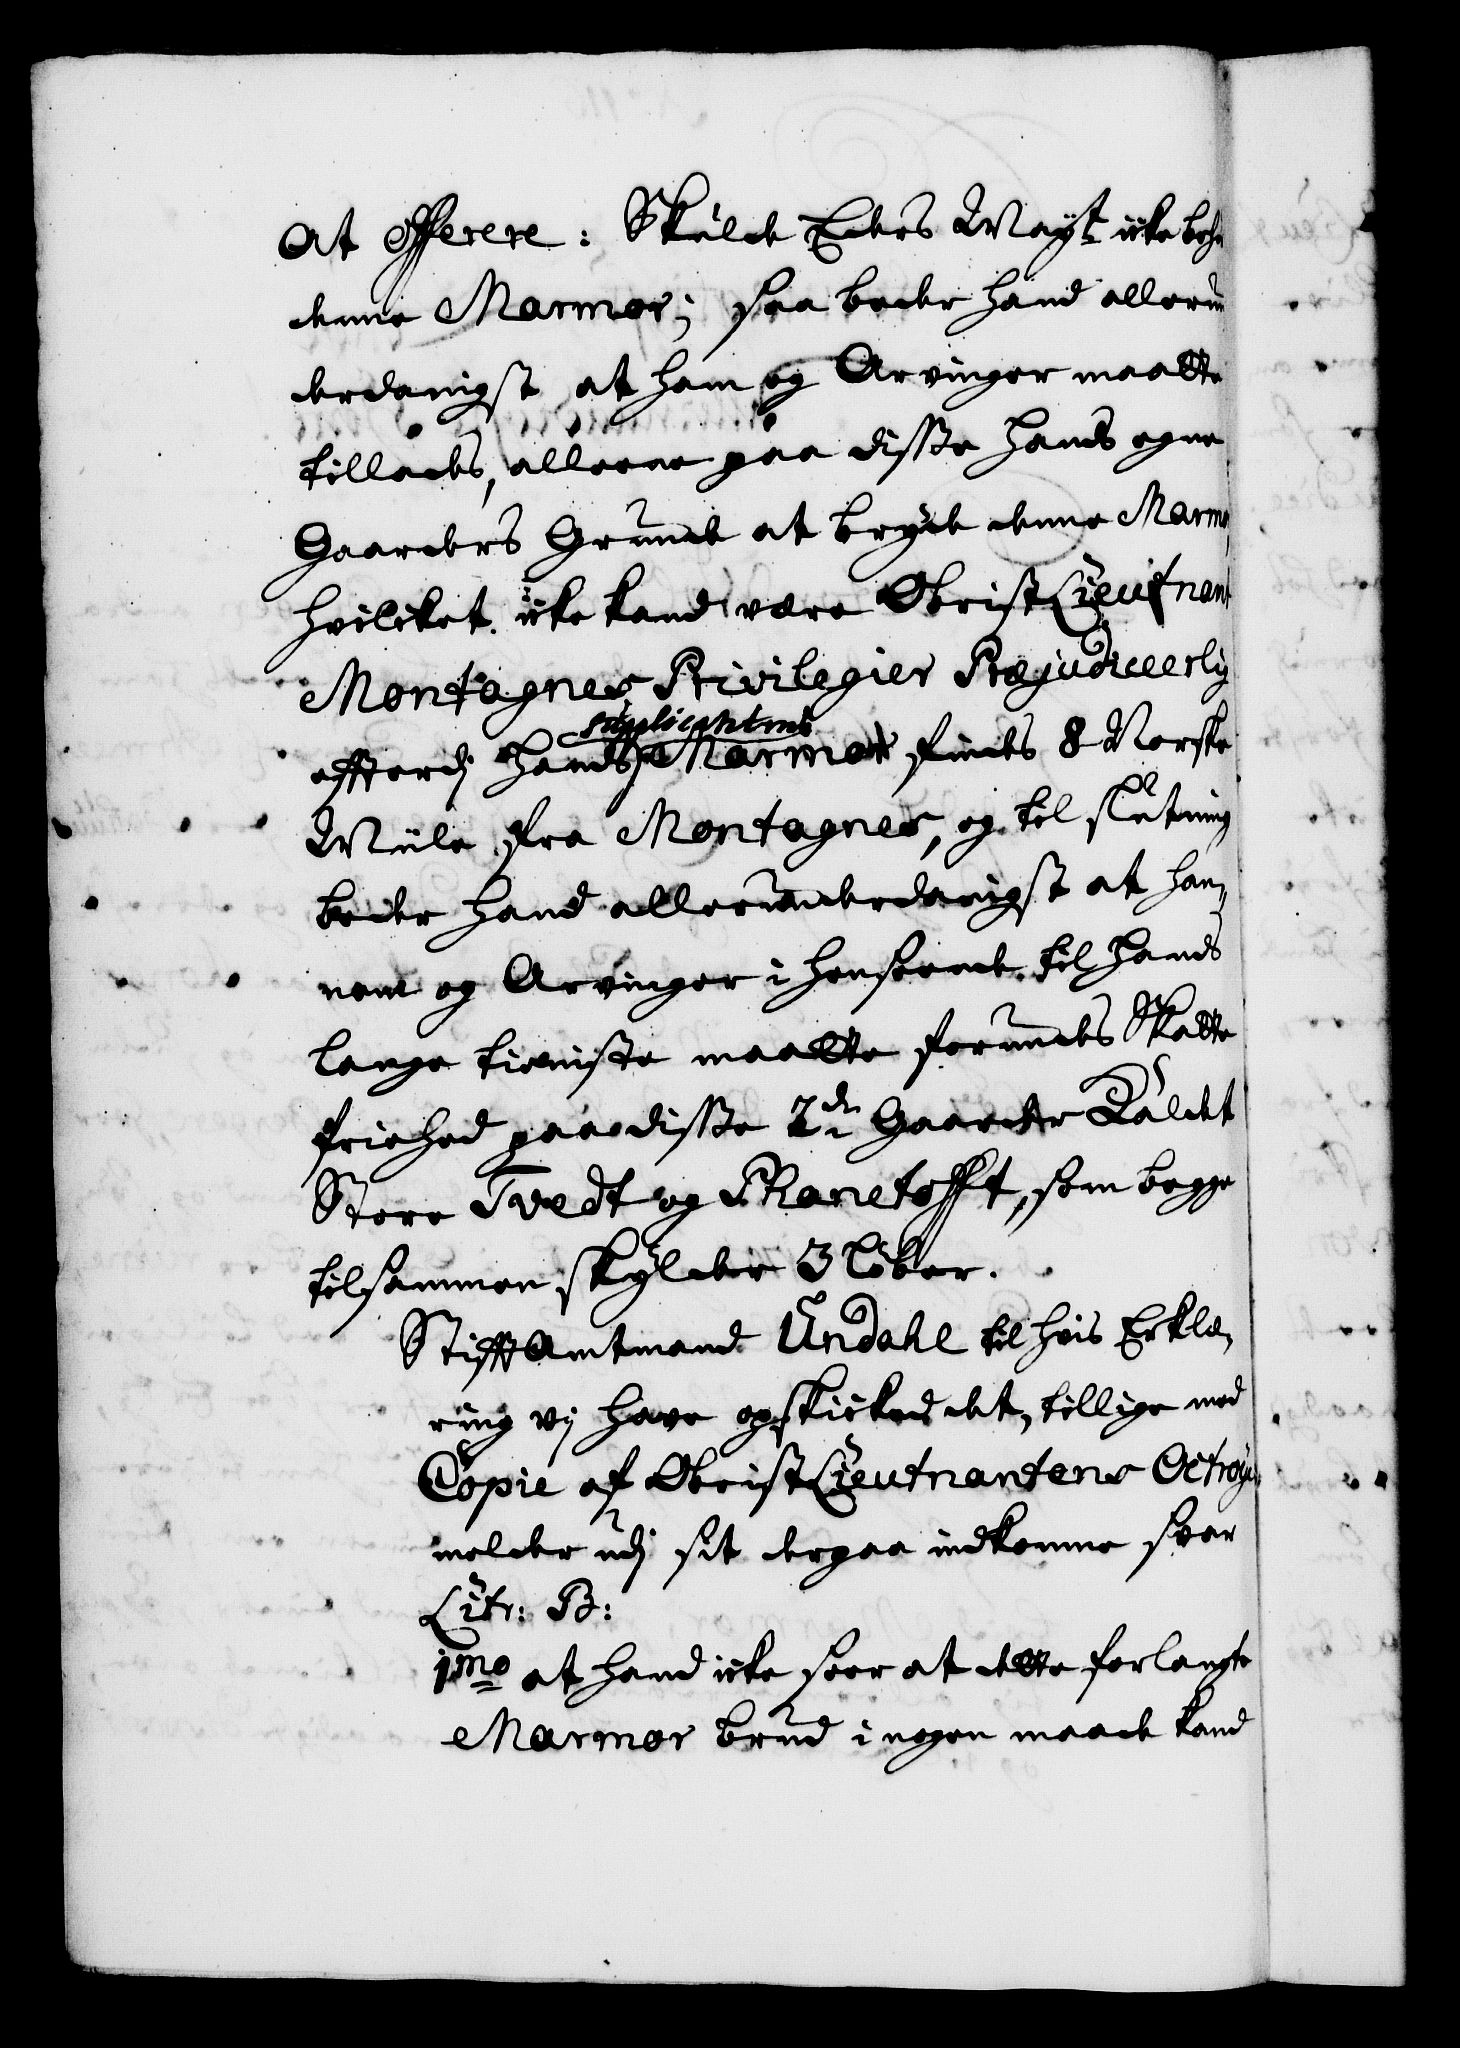 At offerere: Skulde Eders Mayt icke behage
denne Marmor; saa beder hand allerun
derdanigst at ham og Arvinger maatte
tillades, alleene paa disse hands egne
Gaarders Grunde at bryde denne Marmor,
hvilcket icke kand være Obrist Lieutnant
Montagnes Privilegier Præjudiceerlig
efftterdj hands supplicantens Marmor findes 8 Norske
Miile fra Montagnes, og til slutning
beder hand allerunderdanigst at han,
nem og Arvinger i henseende til hands
lange tieniste maatte forundes Skatte
friehed paa disse 2de Gaarder Kaldet
Store Tvedt og Ranetofft, som begge
tilsammen skylder 3 Løber.
StifftAmtmand Undahl til hvis Erklæ,
ring vj have opskicked det, tillige med
Copie af Obrist Lieutnantens Octroye
melder udj sit derpaa indkomne svar
Litr: B:
1mo at hand icke seer at dette forlangte
Marmor brud i nogen maade kand